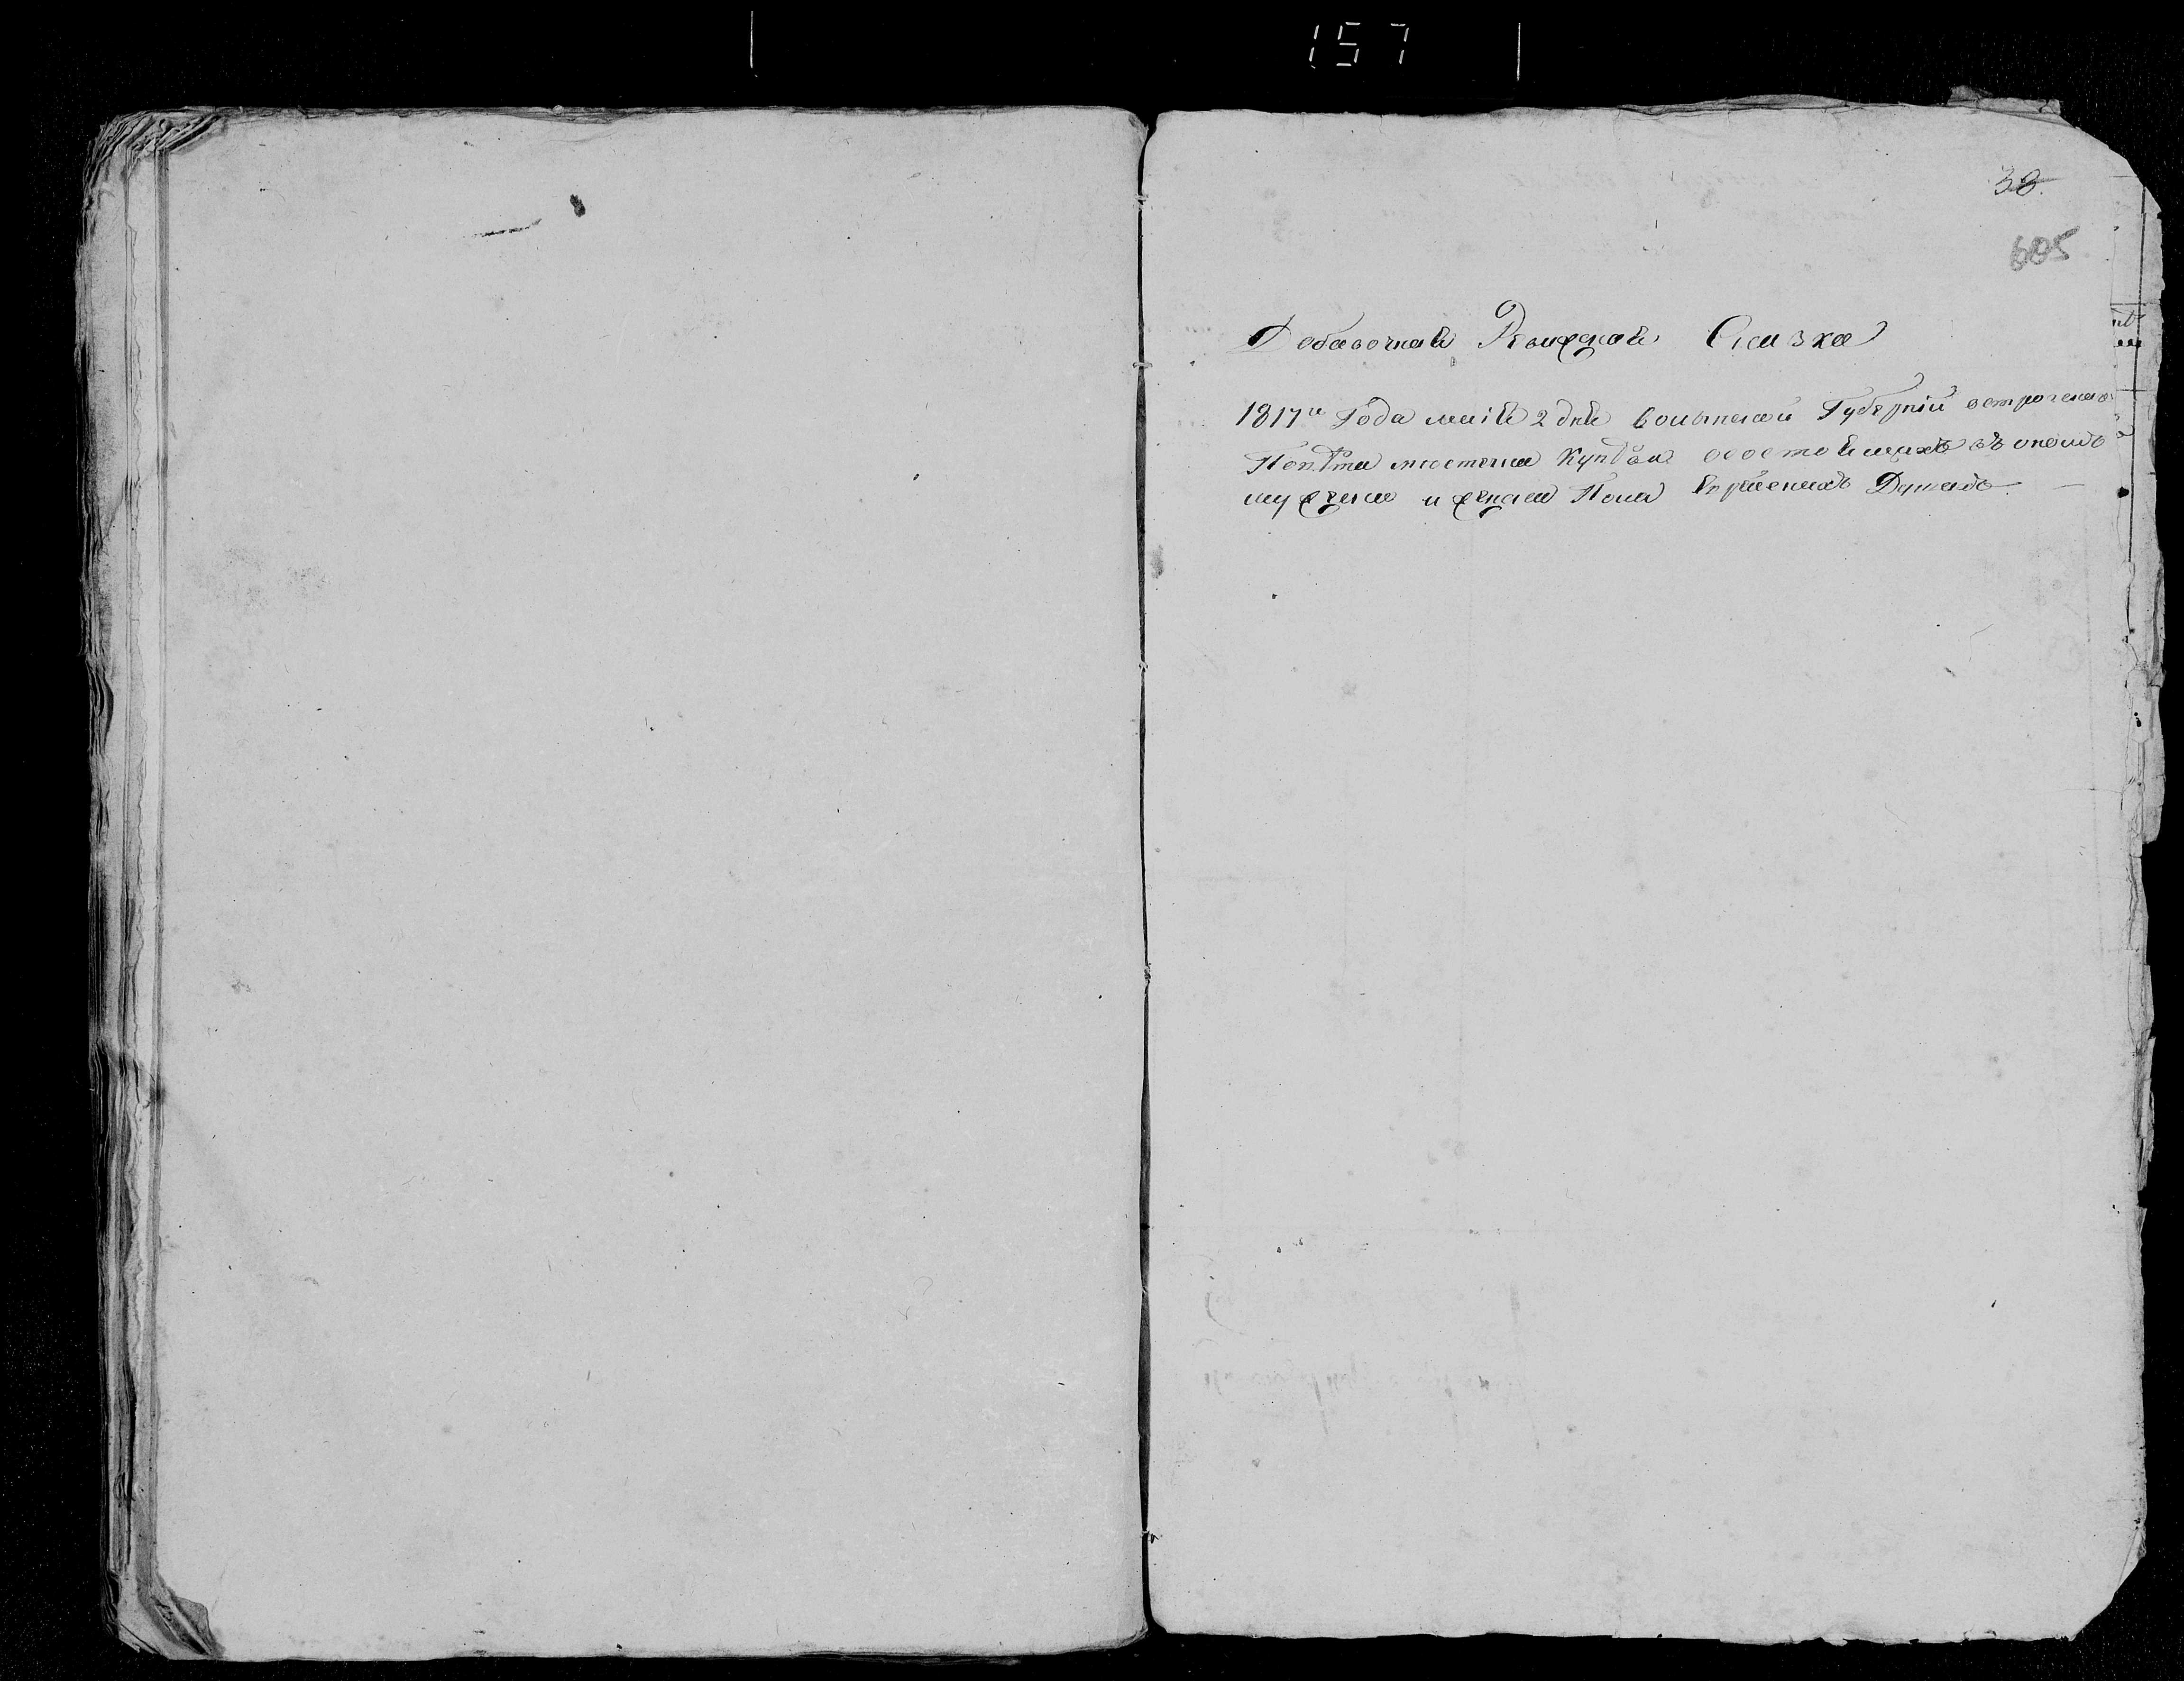 157
38.
605
Добавочная Ревижская Сказка
1817го Года маія 2 дня волынской Губерніи острогского
Повѣта местечка Купѣля о состоящихъ въ ономъ
мужеска и женска Пола Еврейскихъ Душахъ. —